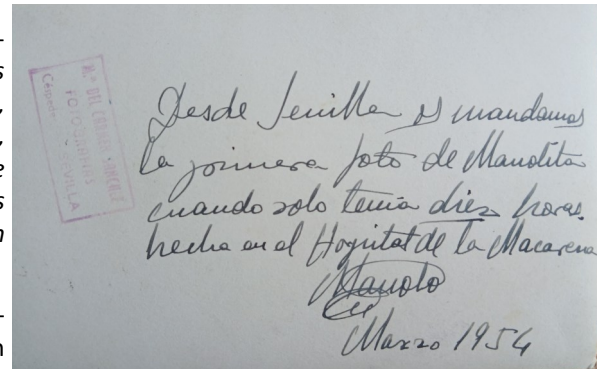 Mª DEL CARMEN SANCHEZ
FOTOGRAFIAS
SEVILLA
Desde Sevilla os mandamos
la primera foto de Manolita
cuando solo tenia diez horas.
hecha en el Hospital de la Macarena
Manolo
Marzo 1954